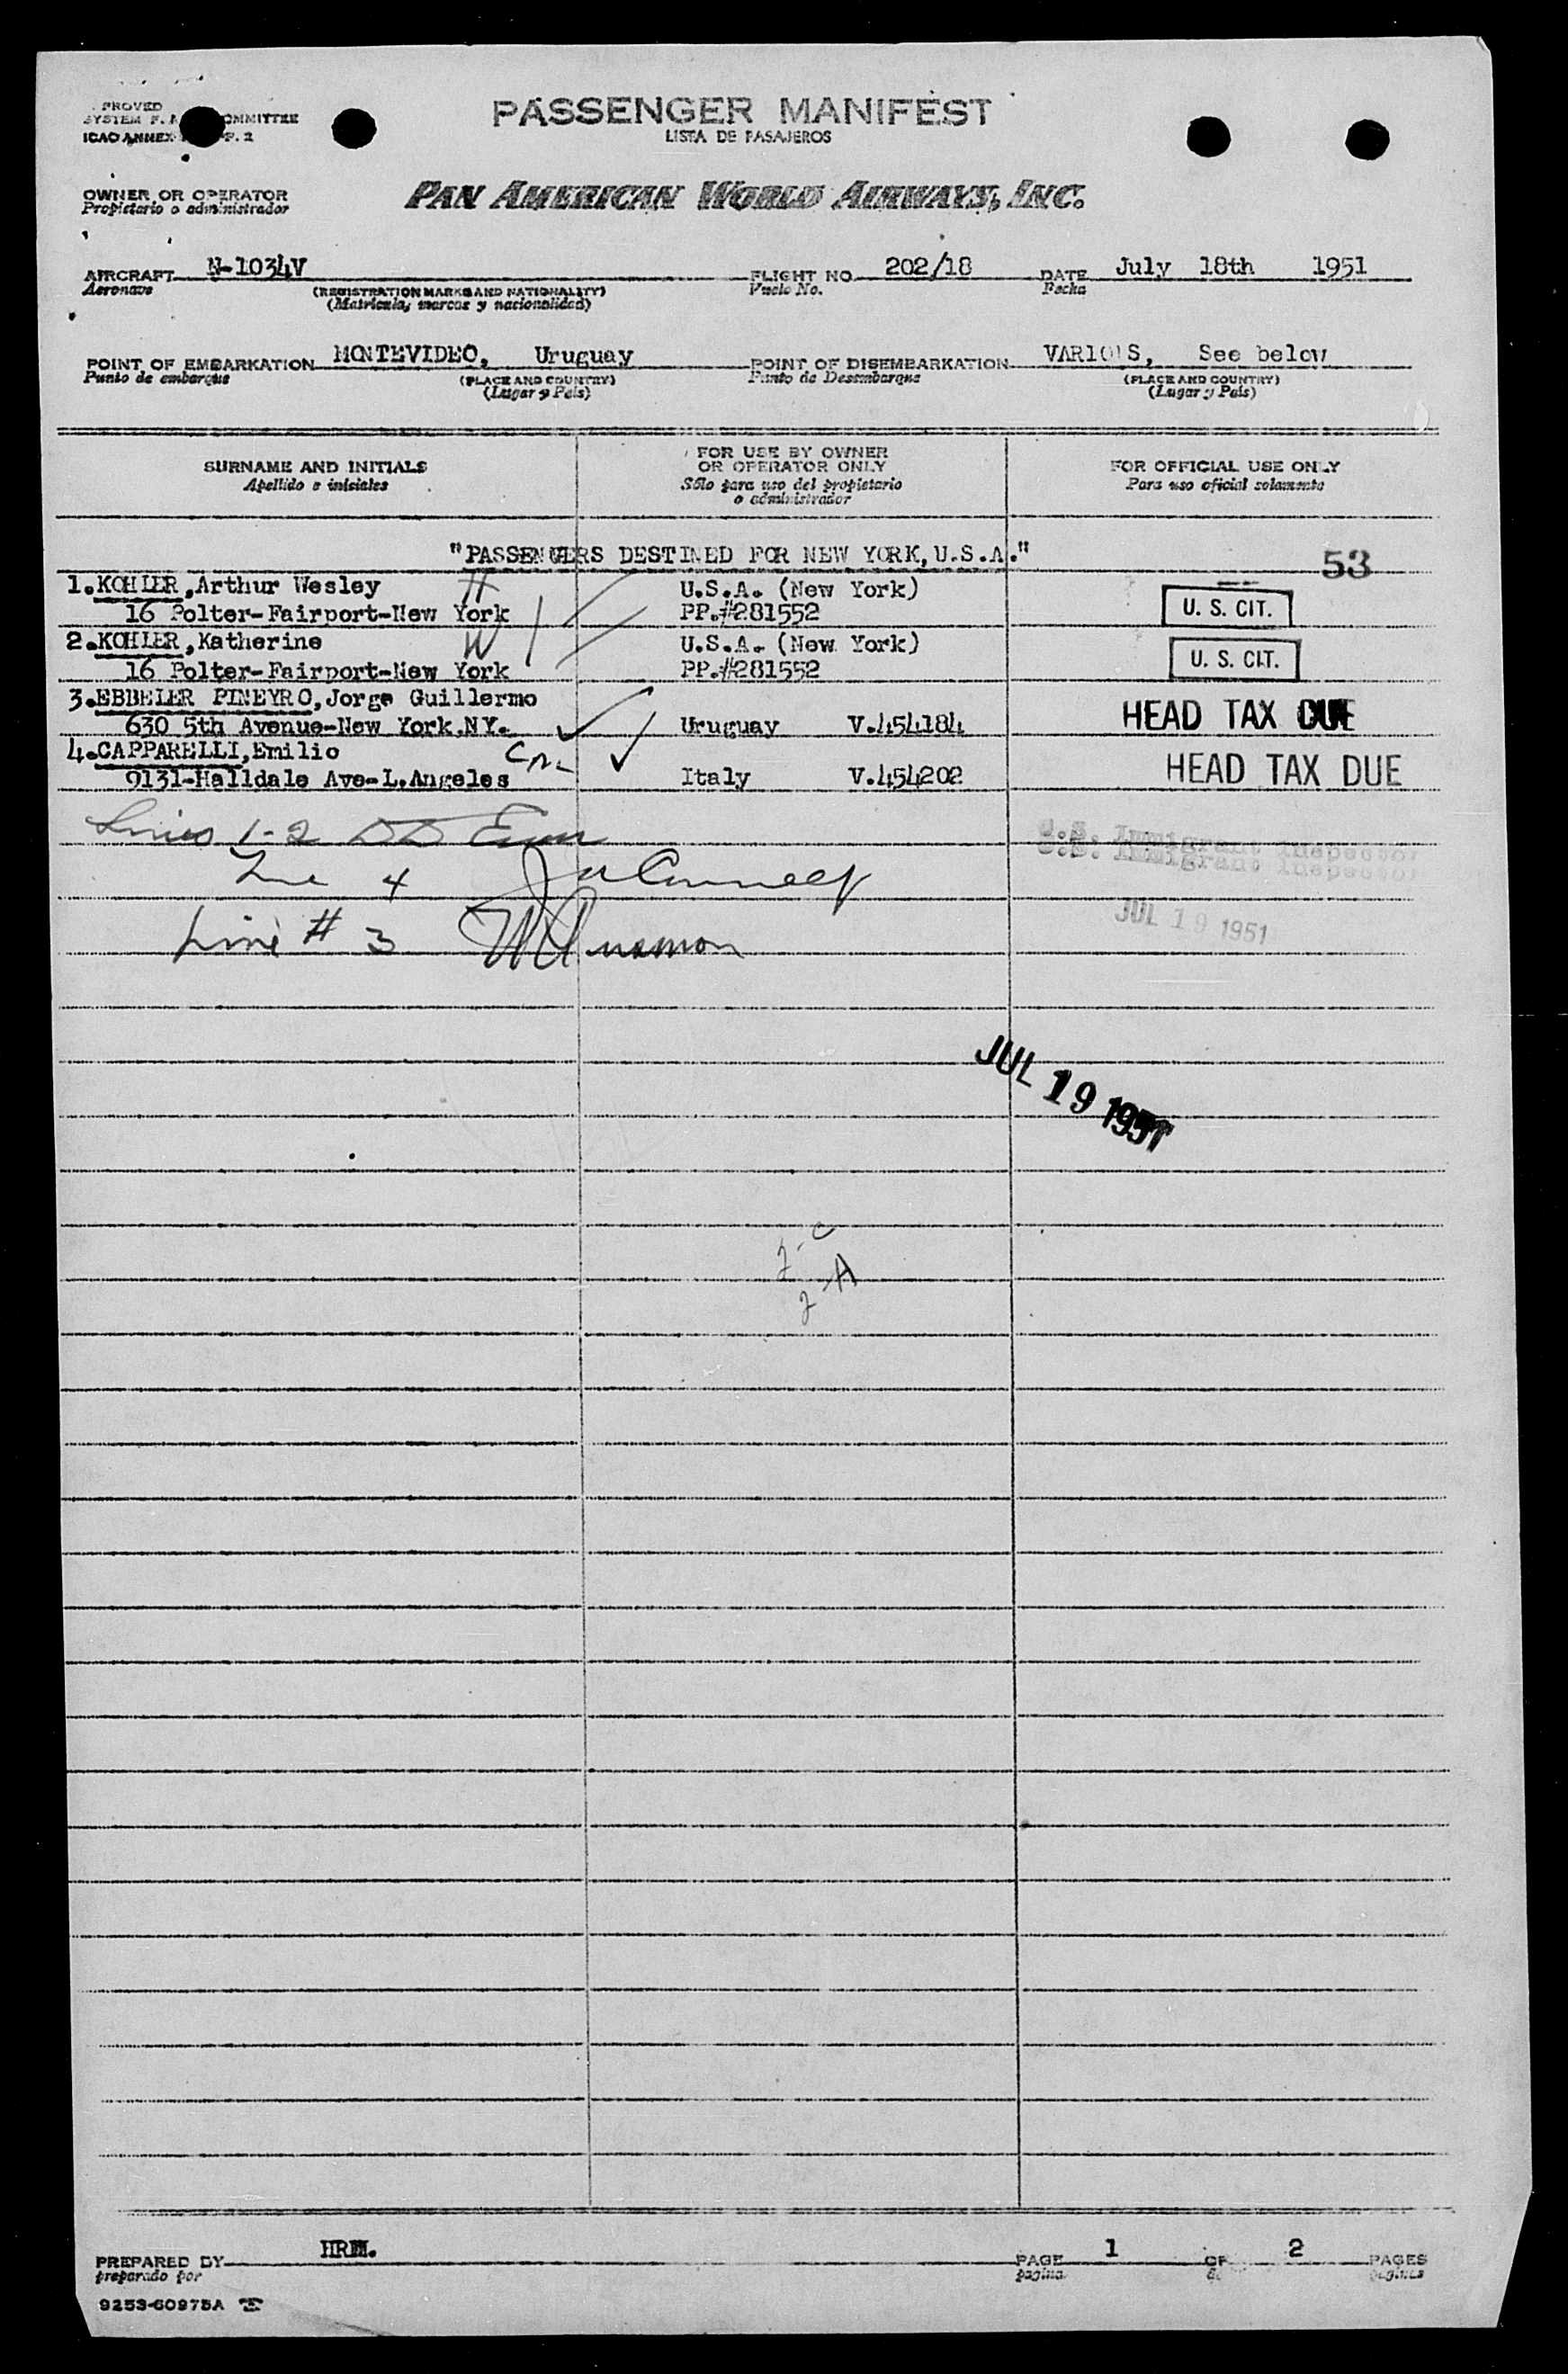 PROVED
SYSTEM F. OMMITTEE
ICAO ANNEX P. 2
PASSENGER MANIFEST
LISTA DE PASAJEROS
OWNER OR OPERATOR
Propietario o administrador
PAN AMERICAN WORLD AIRWAYS, INC.
AIRCRAFT N-1034V FLIGHT NO 202/18 DATE July 18th 1951
Aeronave (REGISTRATION MARKS AND NATIONALITY) Vuelo No. Fecha
(Matricula, marcas y nacionalidad)
POINT OF EMBARKATION MONTEVIDEO, Uruguay POINT OF DISEMBARKATION VARIOUS, See below
Punto de embarque (PLACE AND COUNTRY) Punto de Desembarque (PLACE AND COUNTRY)
(Lugar y Pais) (Lugar y Pais)
SURNAME AND INITIALS
Apellido e iniciales
FOR USE BY OWNER
OR OPERATOR ONLY
Sólo para uso del propietario
o administrador
FOR OFFICIAL USE ONLY
Para uso oficial solamente
"PASSENGERS DESTINED FOR NEW YORK, U.S.A." 53
1.KOHLER,Arthur Wesley H U.S.A. (New York)
16 Polter-Fairport-New York PP.#281552 U. S. CIT.
2.KOHLER,Katherine W U.S.A. (New York)
16 Polter-Fairport-New York PP.#281552 U. S. CIT.
3.EBBELER PINEYRO,Jorge Guillermo
630 5th Avenue-New York.NY. Uruguay V.454184 HEAD TAX DUE
4.CAPPARELLI,Emilio
9131-Halldale Ave-L.Angeles Italy V.454202 HEAD TAX DUE
Lines 1-2
U.S. Immigrant Inspector
U.S. Immigrant Inspector
Line 4
JUL 19 1951
Line # 3
JUL 19 1951
2-C
2-A
PREPARED BY HRM. PAGE 1 OF 2 PAGES
preparado por pagina de paginas
9253-60975A